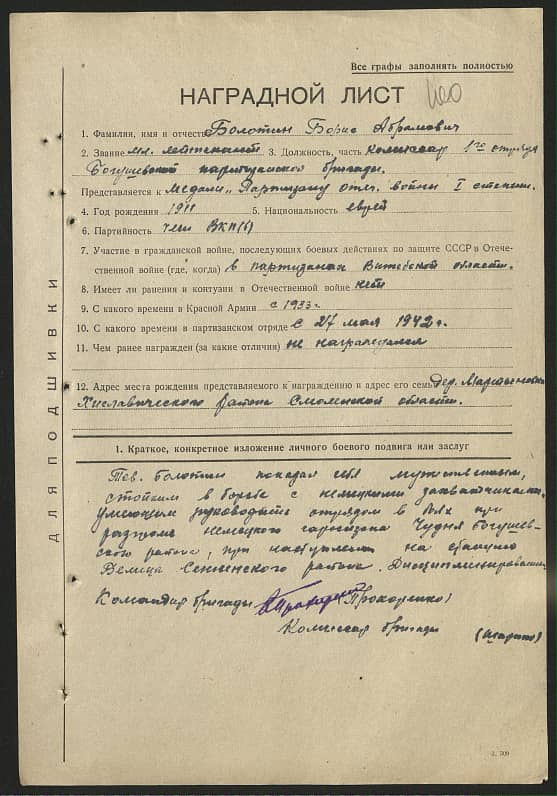 Все графы заполнять полностью
НАГРАДНОЙ ЛИСТ
1. Фамилия, имя и отчество Болотин Борис Абрамович
2. Звание мл. лейтенант 3. Должность, часть комиссар 1го отряда
Богушевской партизанской бригады.
Представляется к медали „Партизану отеч. войны I степени.
4. Год рождения 1911 5. Национальность еврей
6. Партийность член ВКП(б)
7. Участие в гражданской войне, последующих боевых действиях по защите СССР в Отече-
ственной войне (где, когда) в партизанах Витебской области.
8. Имеет ли ранения и контузии в Отечественной войне нет
9. С какого времени в Красной Армии с 1933 г.
10. С какого времени в партизанском отряде с 27 мая 1942 г.
11. Чем ранее награжден (за какие отличия) не награждался
12. Адрес места рождения представляемого к награждению и адрес его семьи дер.
Хиславического района Смоленской области.
1. Краткое, конкретное изложение личного боевого подвига или заслуг
Тов. Болотин показал себя мужественным,
стойким в борьбе с немецкими захватчиками,
умеющим руководить отрядом в боях при
разгроме немецкого гарнизона Чудня Богушев-
ского района, при наступлении на станцию
Сенненского района. Дисциплинирован.
Командир бригады (Прохоренко)
Комиссар бригады
ДЛЯ ПОДШИВКИ